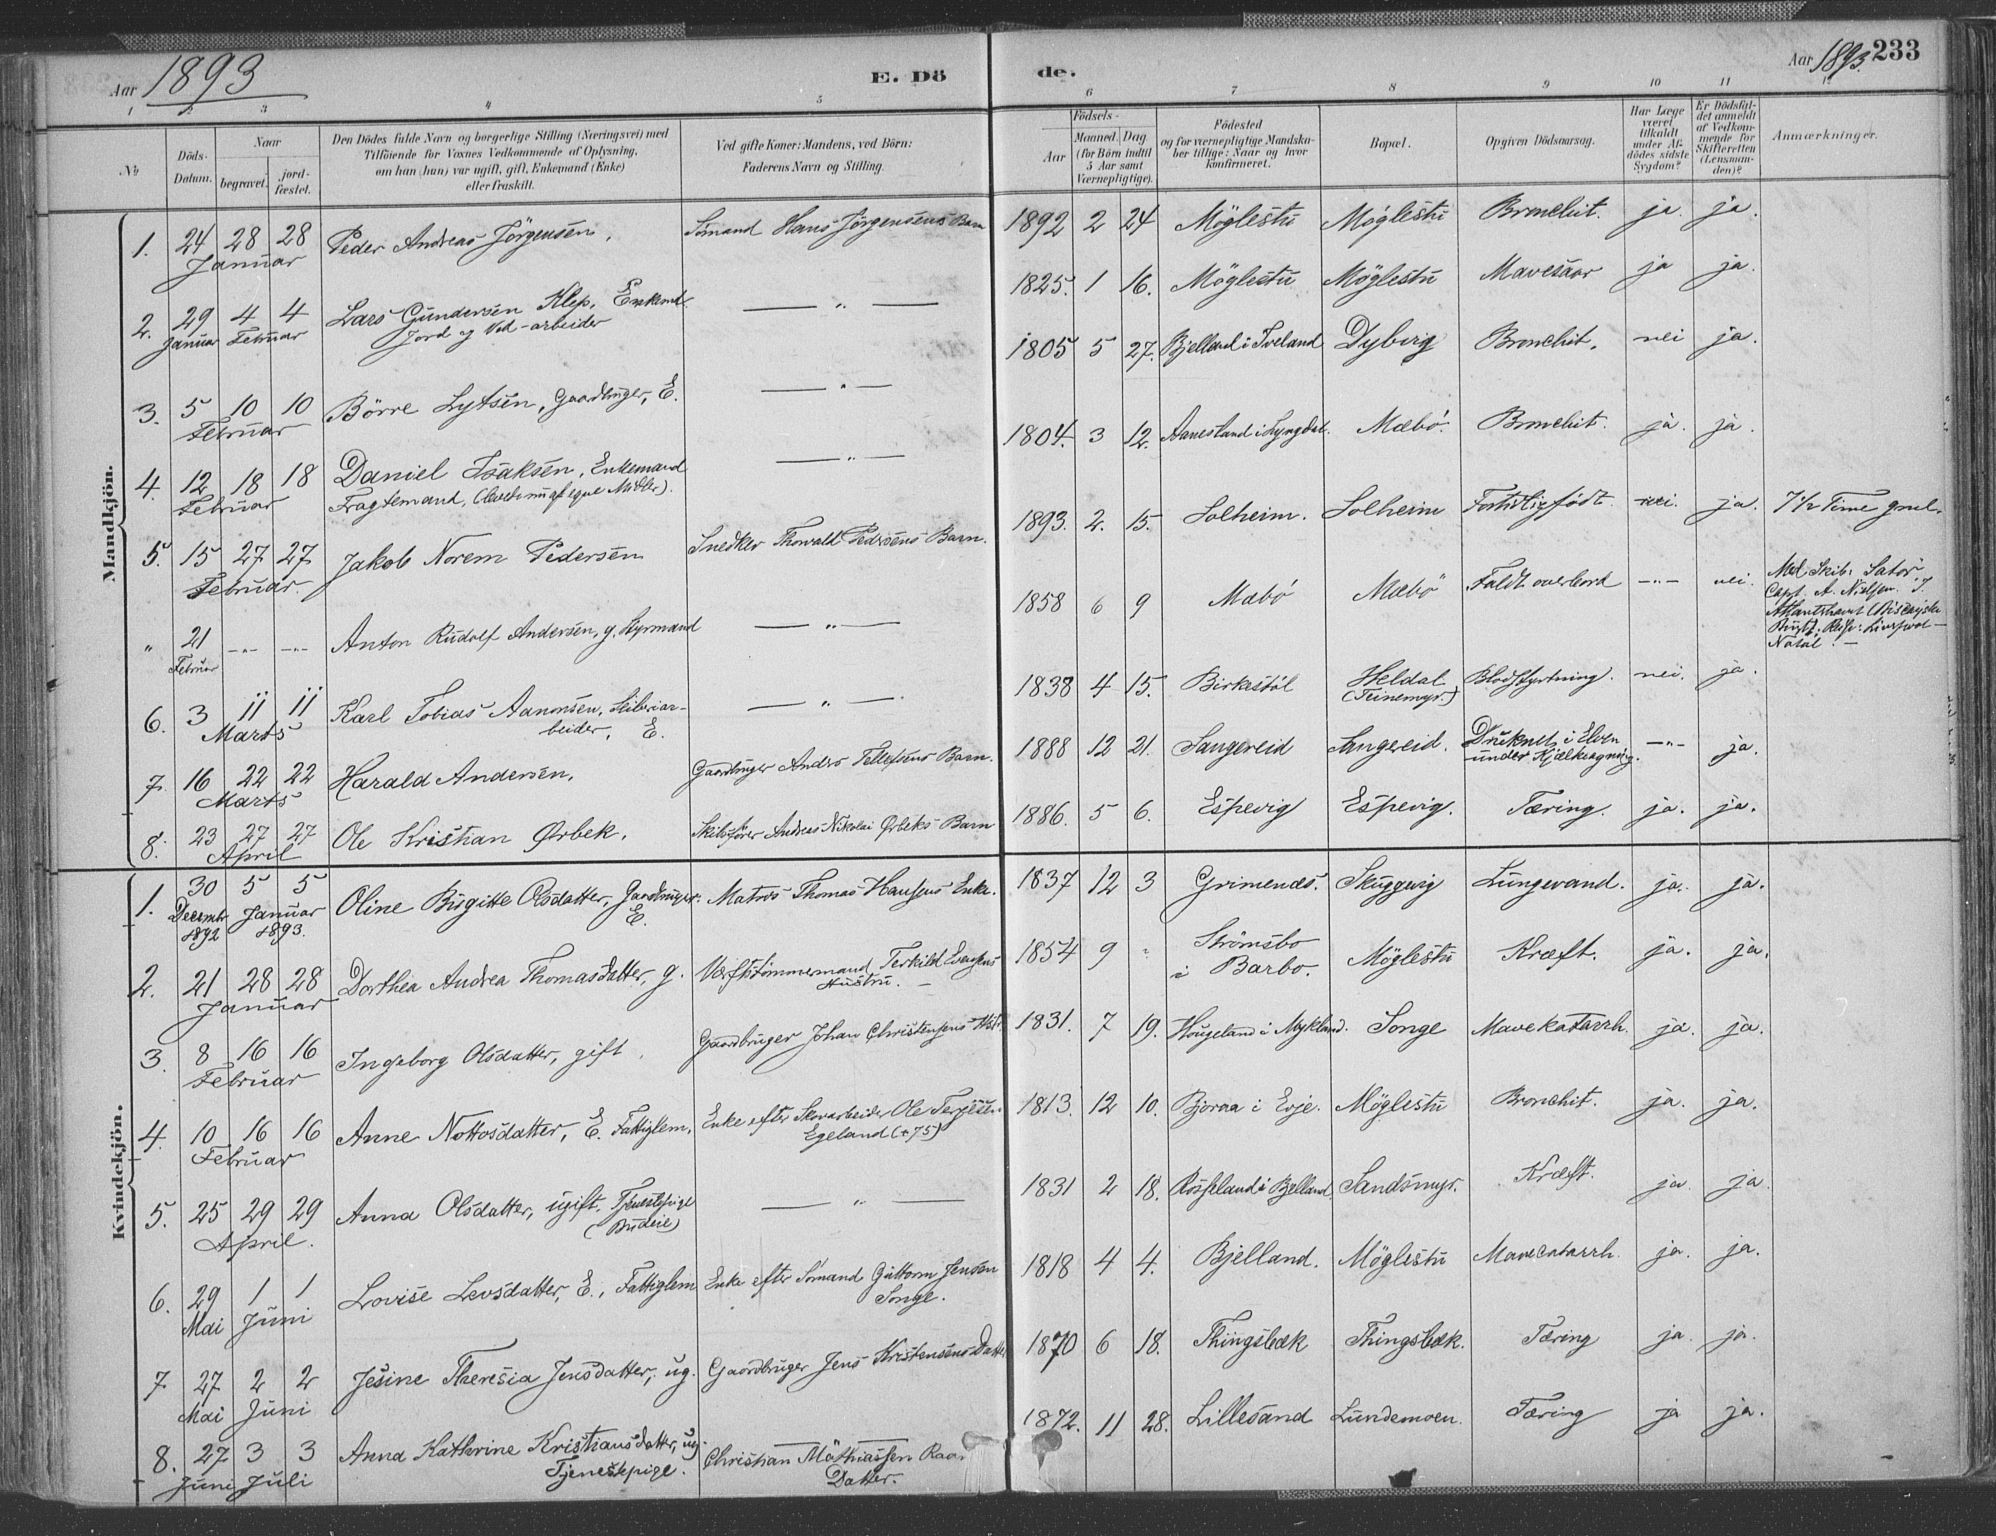 Aar 1893
E. Dö
de.
Aar 1893. 233
1 2 3 4 5 6 7 8 9 10 11 12
No
Döds-
Datum.
Naar
begravet.
jord-
fæstet.
Den Dödes fulde Navn og borgerlige Stilling (Næringsvei) med
Tilföiende for Voxnes Vedkommende af Oplysning,
om han (hun) var ugift, gift, Enkemand (Enke)
eller fraskilt.
Ved gifte Koner: Mandens, ved Börn:
Faderens Navn og Stilling.
Födsels-
Aar
Maaned. Dag
(for Börn indtil
5 Aar samt
Værnepligtige).
Födested
og for værnepligtige Mandska-
ber tillige: Naar og hvor
konfirmeret.
Bopæl.
Opgiven Dödsaarsag.
Har Læge
været
tilkaldt
under Af-
dödes sidste
Sygdom?
Er Dödsfal-
det anmeldt
af Vedkom-
mende for
Skifteretten
(Lensman-
den)?
Anmærkninger.
Mandkjön.
1. 24 28 28 Januar Peder Andreas Jörgensen. Sömand Hans Jörgensens Barn 1892 2 24 Möglestü Möglestü Bronchit. ja. ja.
2. 29 Januar 4 4 Februar Lars Gundersen Klep, Enkemd
Jord og Ved-arbeider — " — 1825. 1 16. Möglestü Möglestü Mavesaar ja ja.
3. 5 10 10 Februar Börre Lytsen, Gaardbruger, E. — " — 1805 5 27. Bjelland i Iveland Dybvig Bronchit. nei ja.
4. 12 18 18 Februar Daniel Isaksen, Enkemand
Fragtemand, — " — 1804. 3 12. Aanesland i Lyngdal. Mæbö. Bronchit. ja. ja.
5. 15 27 27 Februar. Jakob Norem Pedersen Snedker Thorvald Pedersens Barn. 1893. 2. 15. Solheim. Solheim Fortidligfödt. nei. ja. 7 1/2 Time gml.
" 21 Februar -"- -"- Anton Rudolf Andersen, g. Styrmand — " — 1858 6 9 Mæbö Mæbö Faldt overbord -"- nei. Med Skib: Sator,
Capt. A. Nielsen. I
Atlantshavet (Biscayske
Bugt). Reise: Liverpool —
Natal. —
6. 3 11 11 Marts Karl Tobias Aanonsen, Skibsar-
beider, E. — " — 1838 4 15. Birkestöl Heldal
(Teinemyr.) Blodstyrtning. nei. ja.
7. 16 22 22 Marts Harald Andersen, Gaardbruger Andrs Tellefsens Barn. 1888 12 21. Sangereid Sangereid. Druknet i Elven
under Kjælkeagning. -"- ja.
8. 23 27 27 April Ole Kristian Ørbek. Skibsförer Andreas Nikolai Ørbeks Barn 1886. 5 6. Espevig Espevig. Tæring. ja. ja.
Kvindekjön.
1. 30 Decembr 1892 5 5 Januar 1893. Oline Birgitte Olsdatter, Gaardbruger.
E. Matros Thomas Hansens Enke. 1837 12 3 Grimenes. Skuggevig Lungevand. ja. ja.
2. 21 28 28 Januar Dorthea Andrea Thomasdatter, g. Værftstömmermand, Terkild Evensens
Hustru. — 1854 9 " Strömsbo
i Barbo. Möglestü Kræft. ja. ja.
3. 8 16 16 Februar Ingeborg Olsdatter, gift. Gaardbruger Johan Christensens Hst. 1831. 7 19. Hougeland i Mykland. Songe Mavekatarrh. ja. ja.
4. 10 16 16 Februar Anne Nottosdatter, E. Fattiglem. Enke efter Skovarbeider Ole Terjesen
Egeland (+75) 1813. 12 10. Bjoraa i Evje. Möglestü Bronchit. ja. ja.
5. 25 29 29 April. Anna Olsdatter, ugift. Tjenestepige
(Budeie) — " — 1831 2 18. Rosseland i Bjelland Sandsmyr. Kræft. ja. ja.
6. 29 Mai 1 1 Juni Lovise Levsdatter, E., Fattiglem Enke efter Sömand Guttorm Jensen
Songe. 1818 4 4. Bjelland. Möglestü Mavecatarrh. ja. ja.
7 27 Mai 2 2 Juni Jesine Theresia Jensdatter, ug. Gaardbruger Jens Kristensens Datter 1870 6 18. Thingsbæk Thingsbæk. Tæring ja. ja.
8. 27 Juni 3 3 Juli Anna Kathrine Kristiansdatter, ug.
Tjenestepige. Christian Mathiassen
Datter. 1872. 11 28. Lillesand Lundemoen. Tæring ja ja.